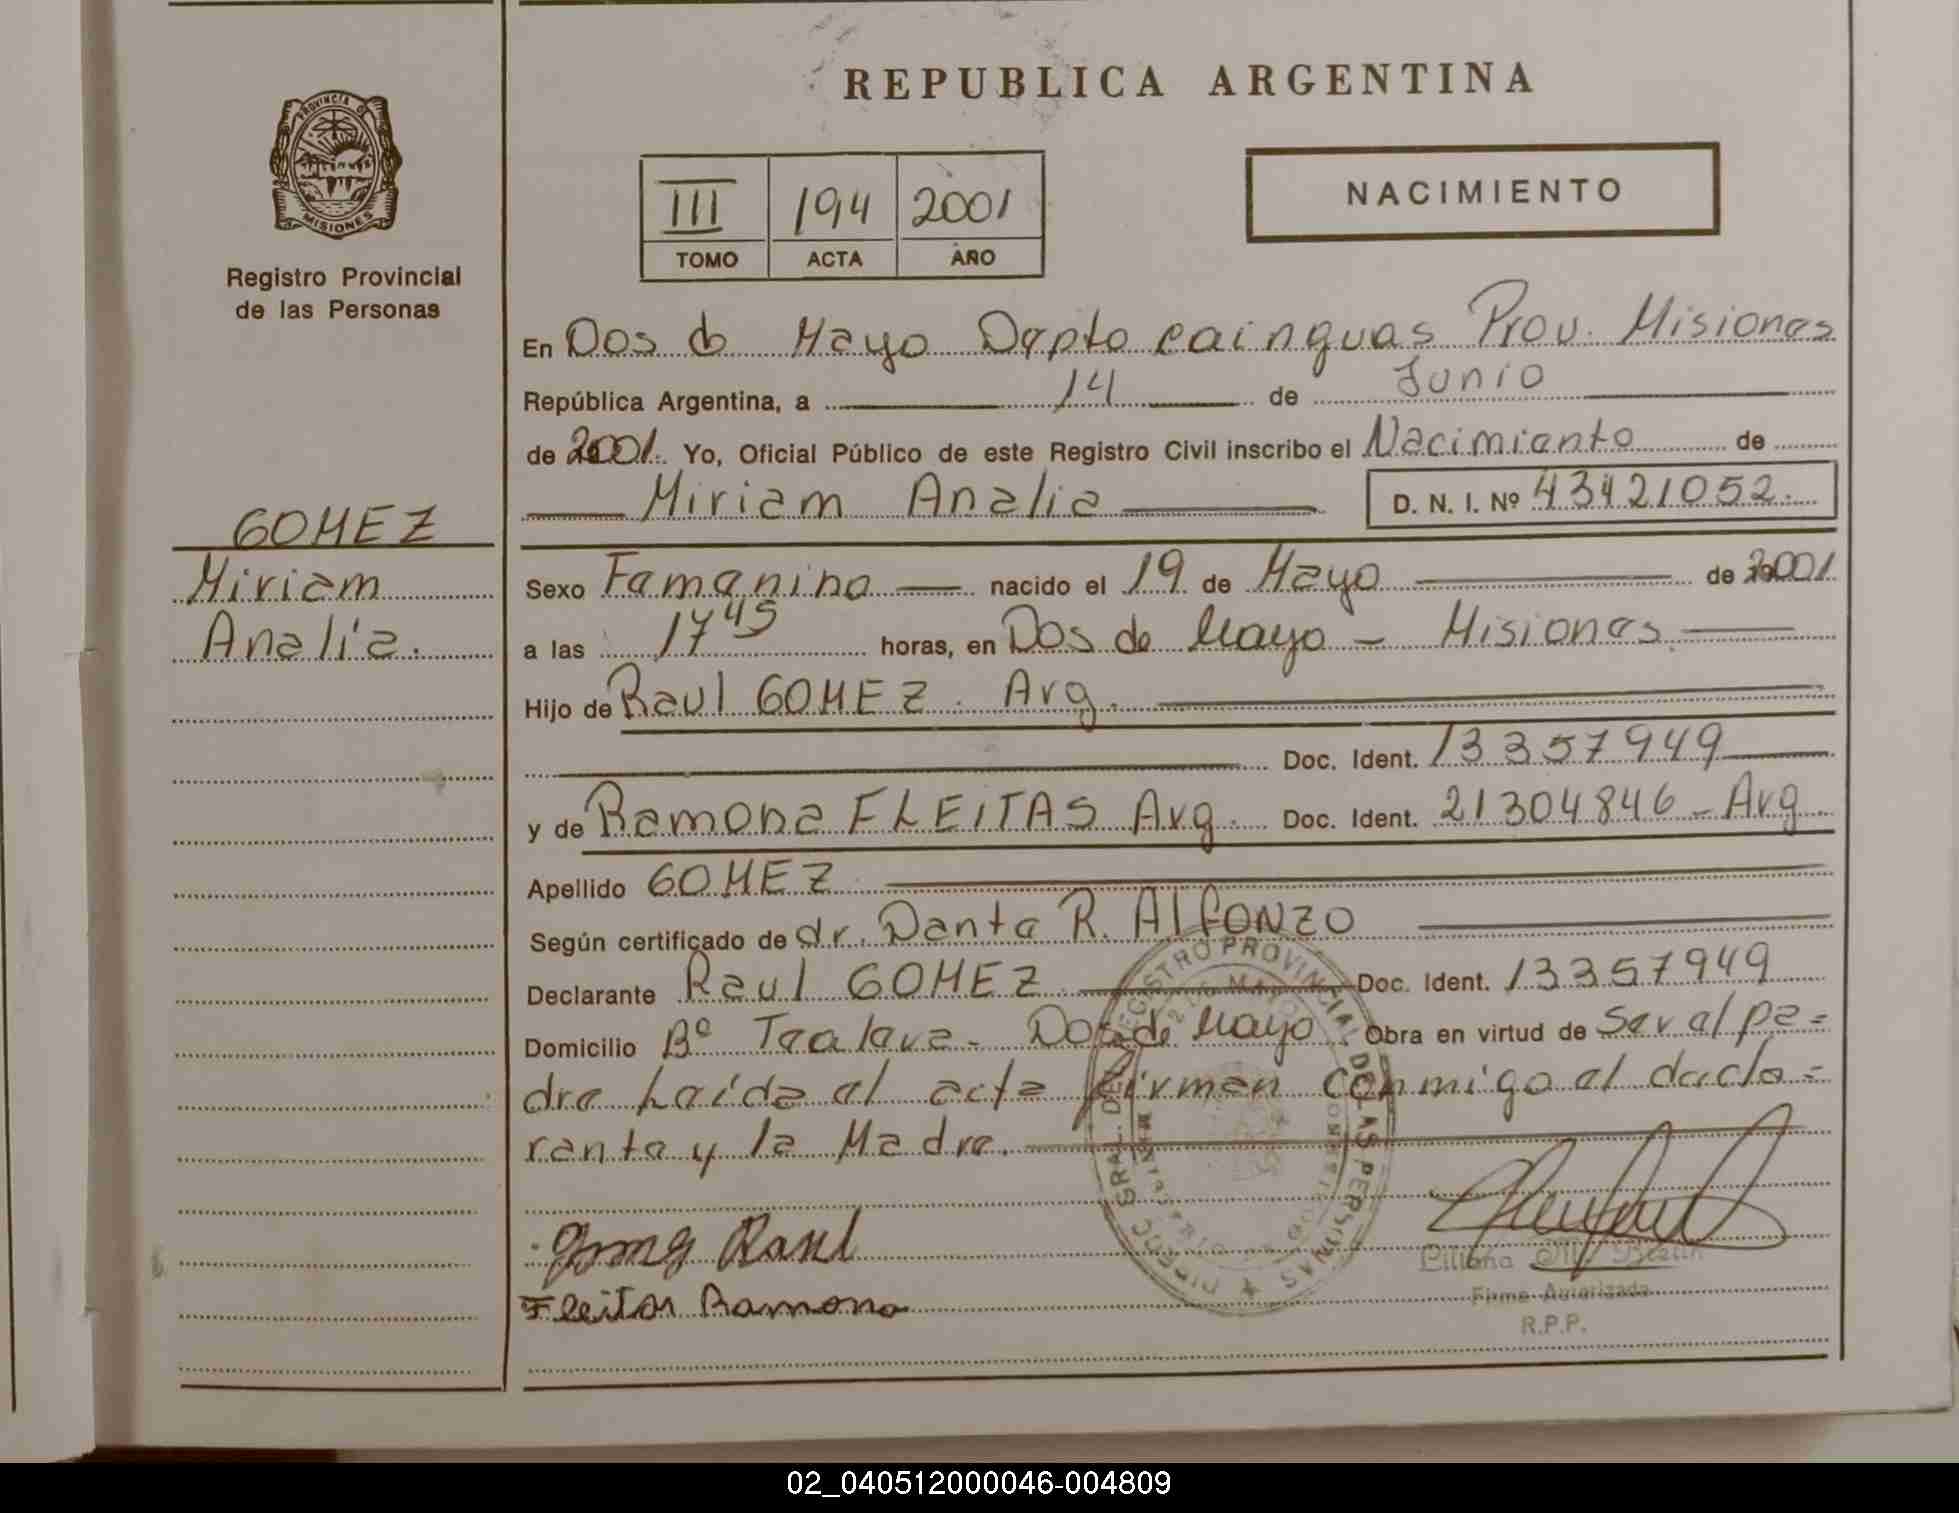 REPUBLICA ARGENTINA
PROVINCIA DE
MISIONES
Registro Provincial
de las Personas
III 194 2001
TOMO ACTA AÑO
NACIMIENTO
En Dos de Mayo Depto Cainguas Prov. Misiones
República Argentina, a 14 de Junio
de 2001. Yo, Oficial Público de este Registro Civil inscribo el Nacimiento de
Miriam Analia D. N. I. Nº 43421052
GOMEZ
Miriam
Analía.
Sexo Femenino nacido el 19 de Mayo de 2001
a las 17 45 horas, en Dos de Mayo - Misiones
Hijo de Raul GOMEZ. Arg.
Doc. Ident. 13357949
y de Ramona FLEITAS Arg. Doc. Ident. 21304846 - Arg.
Apellido GOMEZ
Según certificado de dr. Dante R. AlfONZO
Declarante Raul GOMEZ Doc. Ident. 13357949
Domicilio Bº - Dos de Mayo Obra en virtud de Ser el pa=
dre Leída el acta firman conmigo el decla=
rante y la Madre.
DIRECC. GRAL. DEL REGISTRO PROVINCIAL DE LAS PERSONAS
Raul
Fleitas Ramona
Liliana
Firma Autorizada
R.P.P.
02_040512000046-004809